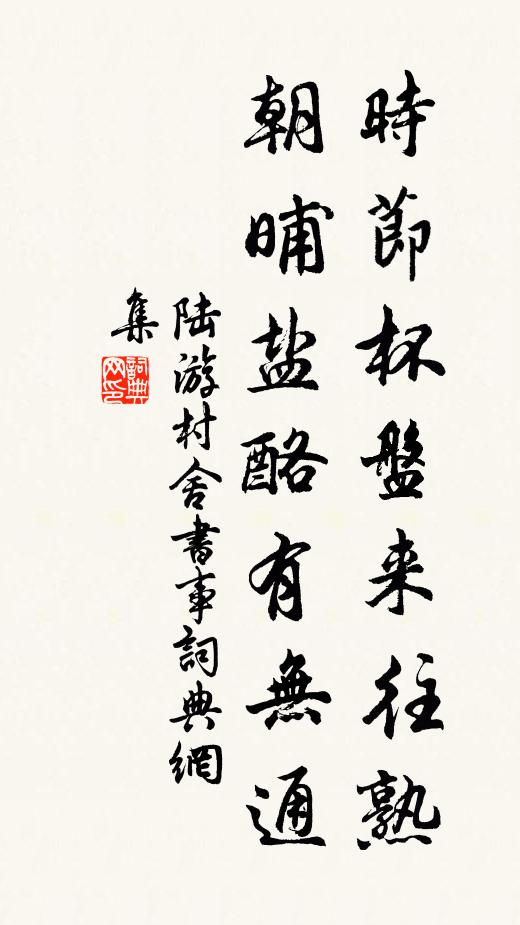 時節杯盤来往熟
朝晡盐酪有無通
陆游村舍書事詞典網
集
詞典网印